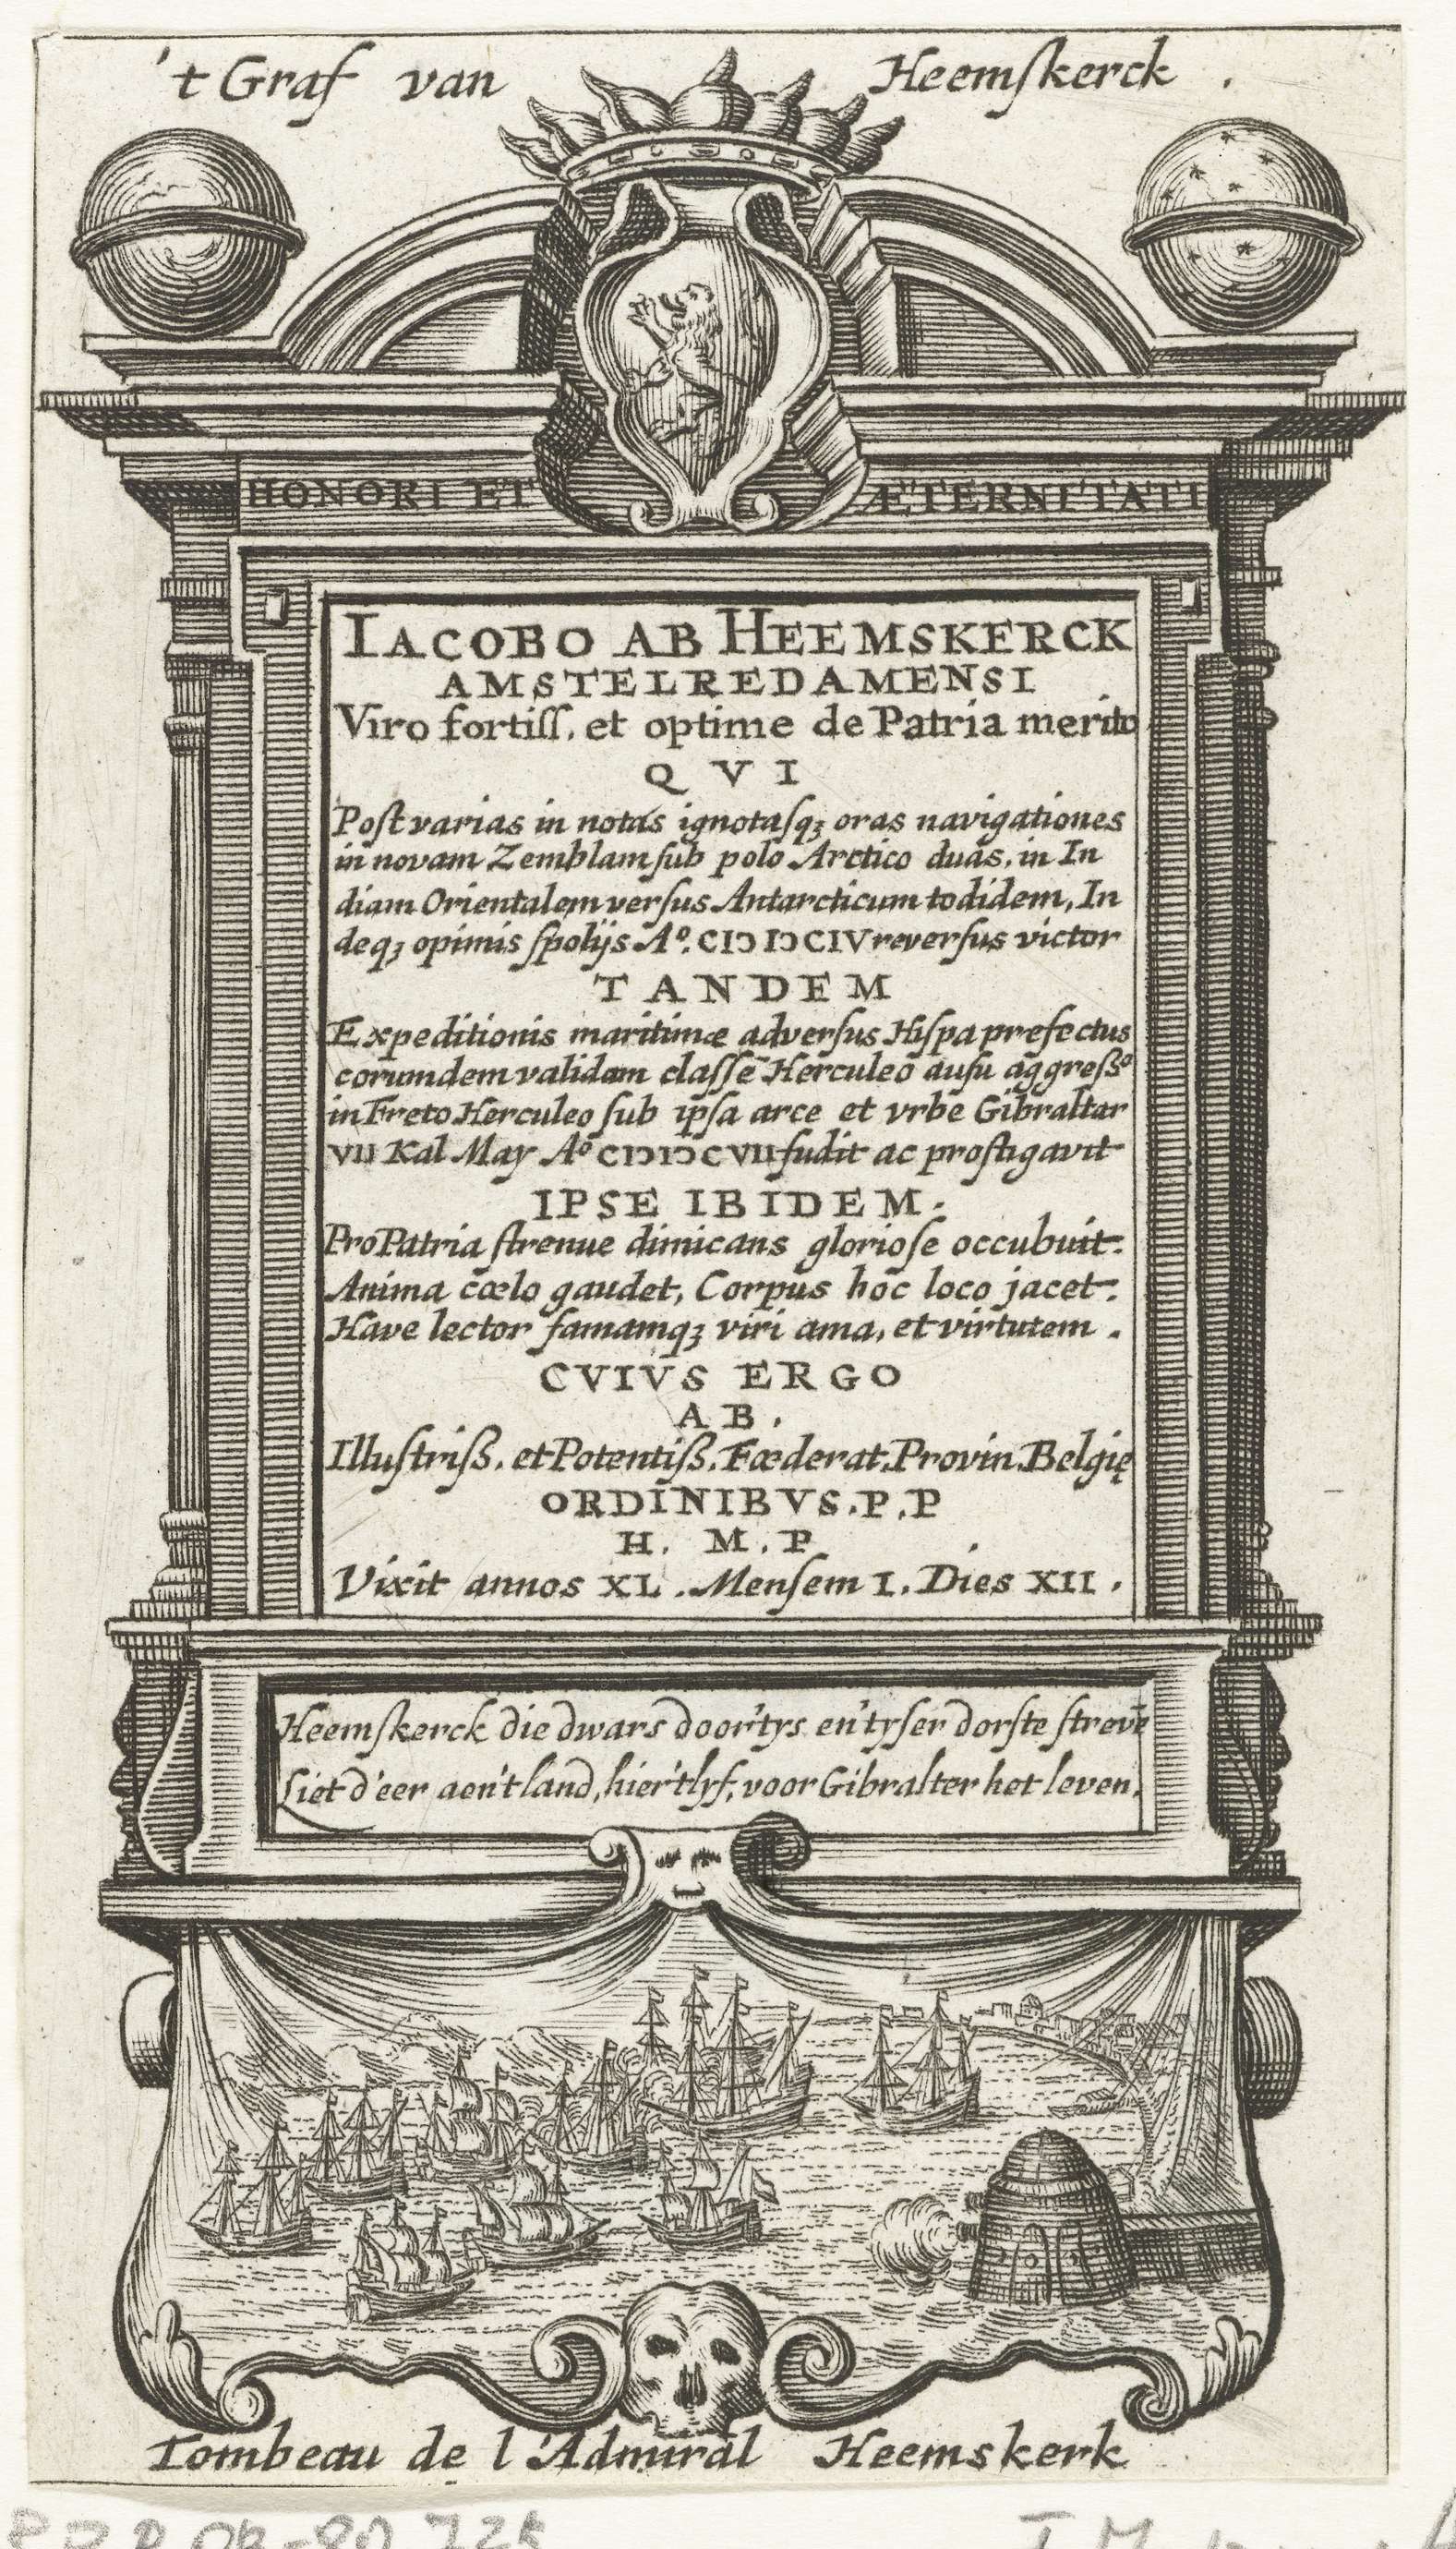 't Graf van Heemſkerck .
HONORI ET ÆTERNITATI
IACOBO AB HEEMSKERCK
AMSTELREDAMENSI
Viro fortiſſ. et optime de Patria merito
Q V I
Poſt varias in notas ignotaſqꝫ oras navigationes
in novam Zemblam ſub polo Arctico duas, in In
diam Orientalem verſus Antarcticum todidem, In
deqꝫ opimis ſpolijs Aº. CIↃ IↃ CIV reverſus victor
T A N D E M
Expeditionis maritimæ adverſus Hiſpa prefectus
corumdem validam claſſē Herculeo auſu aggreſsº
in Freto Herculeo ſub ipſa arce et vrbe Gibraltar
VII Kal May Aº CIↃIↃC VII fudit ac profligavit
IPSE IBIDEM.
Pro Patria ſtrenue dimicans glorioſe occubuit.
Anima cœlo gaudet, Corpus hoc loco jacet.
Have lector famamqꝫ viri ama, et virtutem .
CVIVS ERGO
A B .
Illuſtriſs. et Potentiſs. Fœderat. Provin. Belgię
ORDINIBVS. P. P
H. M. P
Vixit annos XL . Menſem I. Dies XII .
Heemſkerck die dwars door'tys en'tyſer dorſte ſtrevē
Liet d'eer aen't land, hier'tlyf, voor Gibralter het leven.
Tombeau de l'Admiral Heemskerk